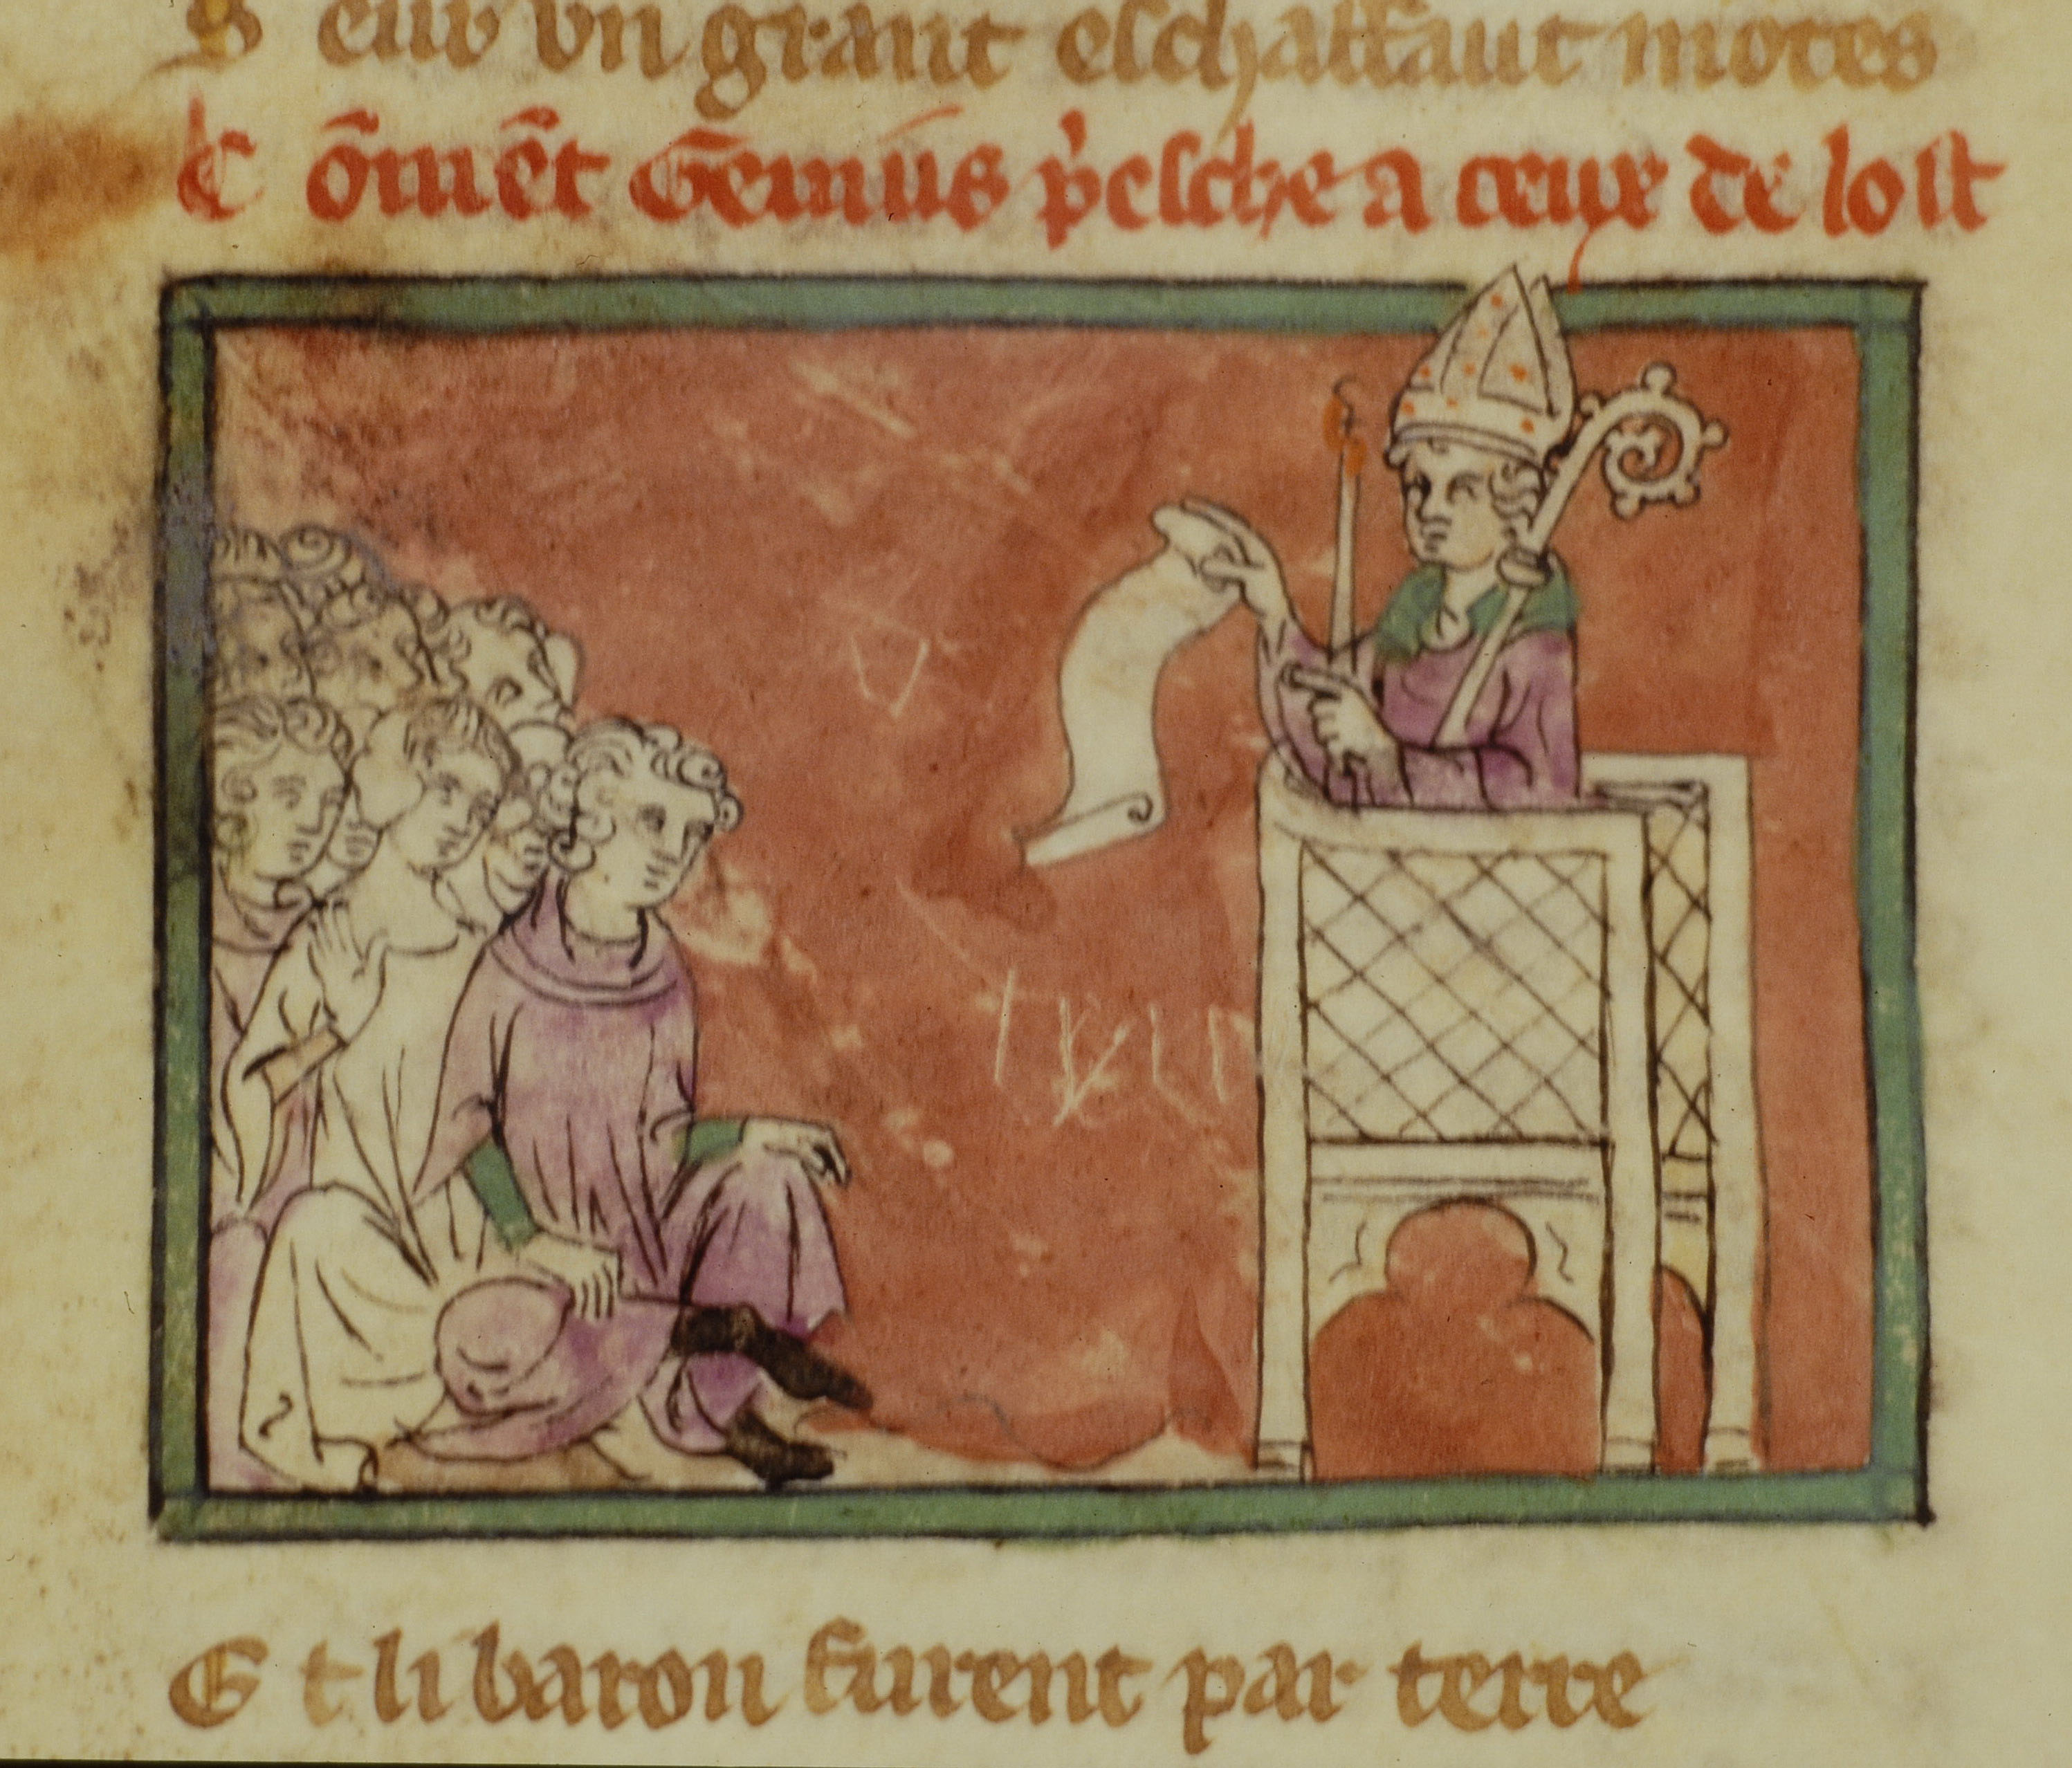 S eur vn grant eschaffaut montes
C õmẽt Genius p̾esche a ceux de lost
E t li baron furent par terre